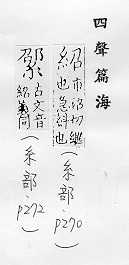 四聲篇海
紹市沼切繼
也急糾也
(糸部.p270)
古文音
紹義同
(糸部.p272)